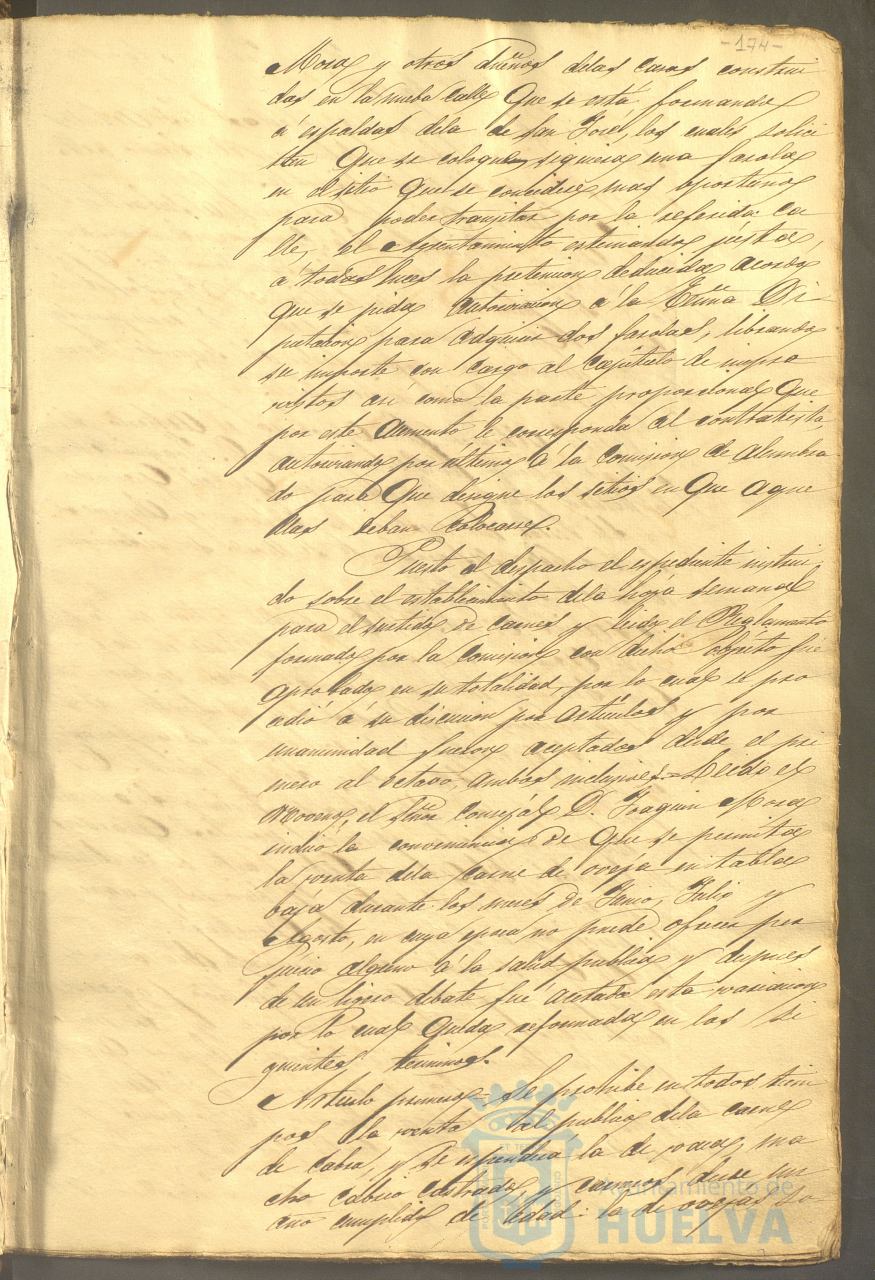 -174-
Mora y otros dueños delas casas construi
das en la nueba calle que se está formando
á espaldas dela de San José, los cuales solici
tan que se coloque siquiera una farola
en el sitio que se considere mas oportuno
para poder transitar por la referida ca
lle, el Ayuntamiento estimando justa,
á todas luces la pretension deducida acordó
que se pida autorizacion a la Exma Di
putacion para adquirir dos farolas, librando
su importe con cargo al capitulo de impre
vistos asi como la parte proporcional que
por este aumento le corresponda al contratista
autorizando por ultimo á la Comision de alumbra
do para que designe los sitios en que aque
llas deban colocarse.
Puesto al despacho el espediente instrui
do sobre el establecimiento dela hoja semanal
para el surtido de carnes y leido el Reglamento
formado por la Comision con dicho objeto fué
aprobado en su totalidad, por lo cual se pro
cedió á su discusion por articulos y por
unanimidad fueron aceptados desde el pri
mero al octavo, ambos inclusives. = Leido el
Noveno, el Señor Concejal D. Joaquin Mora
indicó la conveniencia de que se permita
la venta dela carne de oveja en tabla
baja durante los meses de Junio, Julio y
Agosto, en cuya epoca no puede ofrecer per
juicio alguno á la salud publica y despues
de un ligero debate fué acetada esta variacion
por lo cual queda reformada en los si
guientes terminos.
Articulo primero = Se prohibe en todos tiem
pos la venta al publico dela carne
de cabra, y se espenderá la de vaca, ma
cho cabrio castrado y carneros desde un
año cumplido de edad: la de ovejas so
Ayuntamiento de
HUELVA